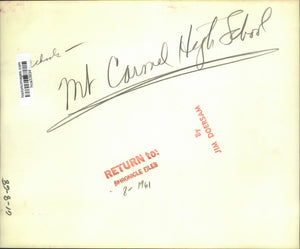 Schools -
Mt Carmel High School
By
JIM DOERSAM
RETURN to:
CHRONICLE FILES
8- 1961
32-8-10